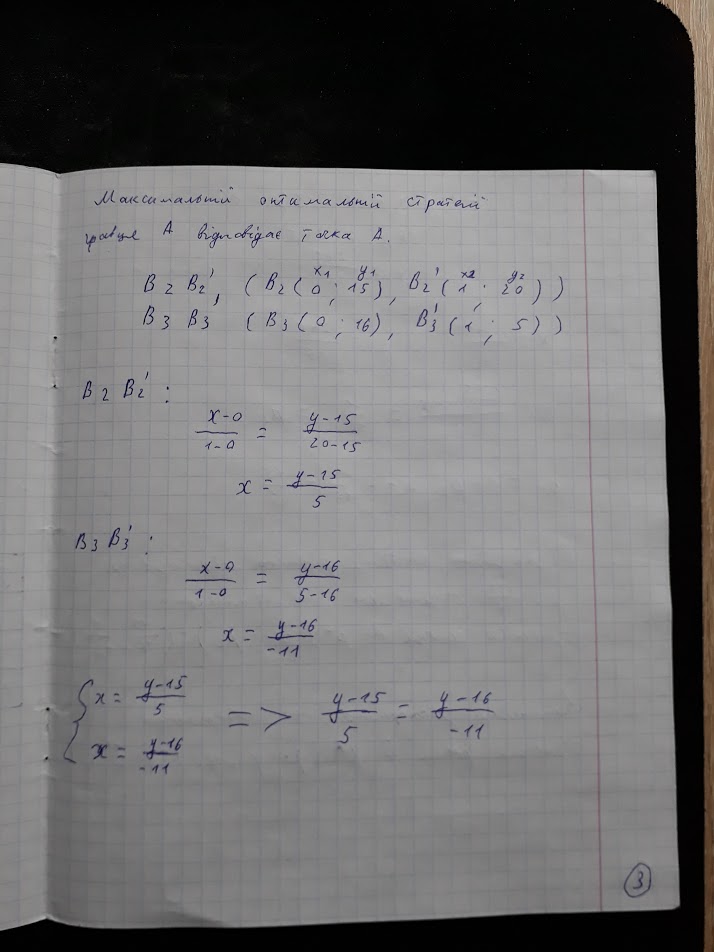 Максимальній оптимальній стратегії
гравця А відповідає точка А.
x₁ y₁ x₂ y₂
B₂ B₂', (B₂(0; 15), B₂'(1; 20))
B₃ B₃' (B₃(0; 16), B₃'(1; 5))
B₂ B₂':
(x-0)/(1-0) = (y-15)/(20-15)
x = (y-15)/5
B₃ B₃':
(x-0)/(1-0) = (y-16)/(5-16)
x = (y-16)/-11
{ x = (y-15)/5
x = (y-16)/-11 => (y-15)/5 = (y-16)/-11
3